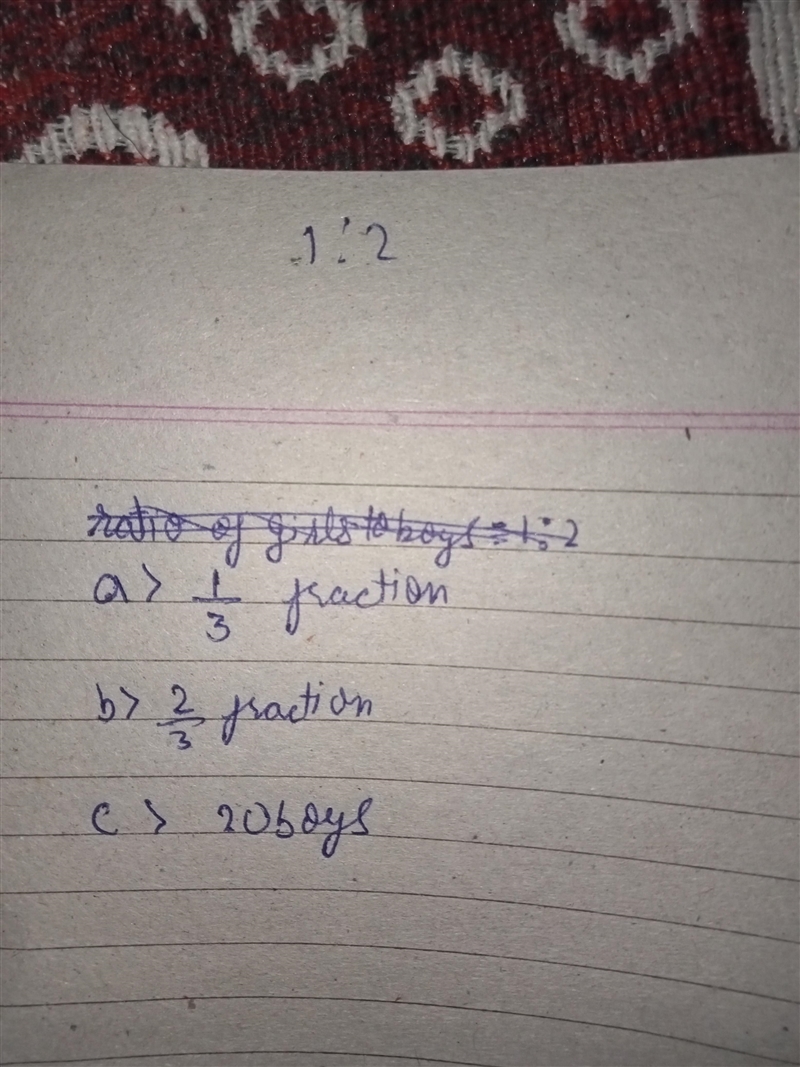 1:2
ratio of girls to boys = 1:2
a> 1/3 fraction
b> 2/3 fraction
c> 20 boys